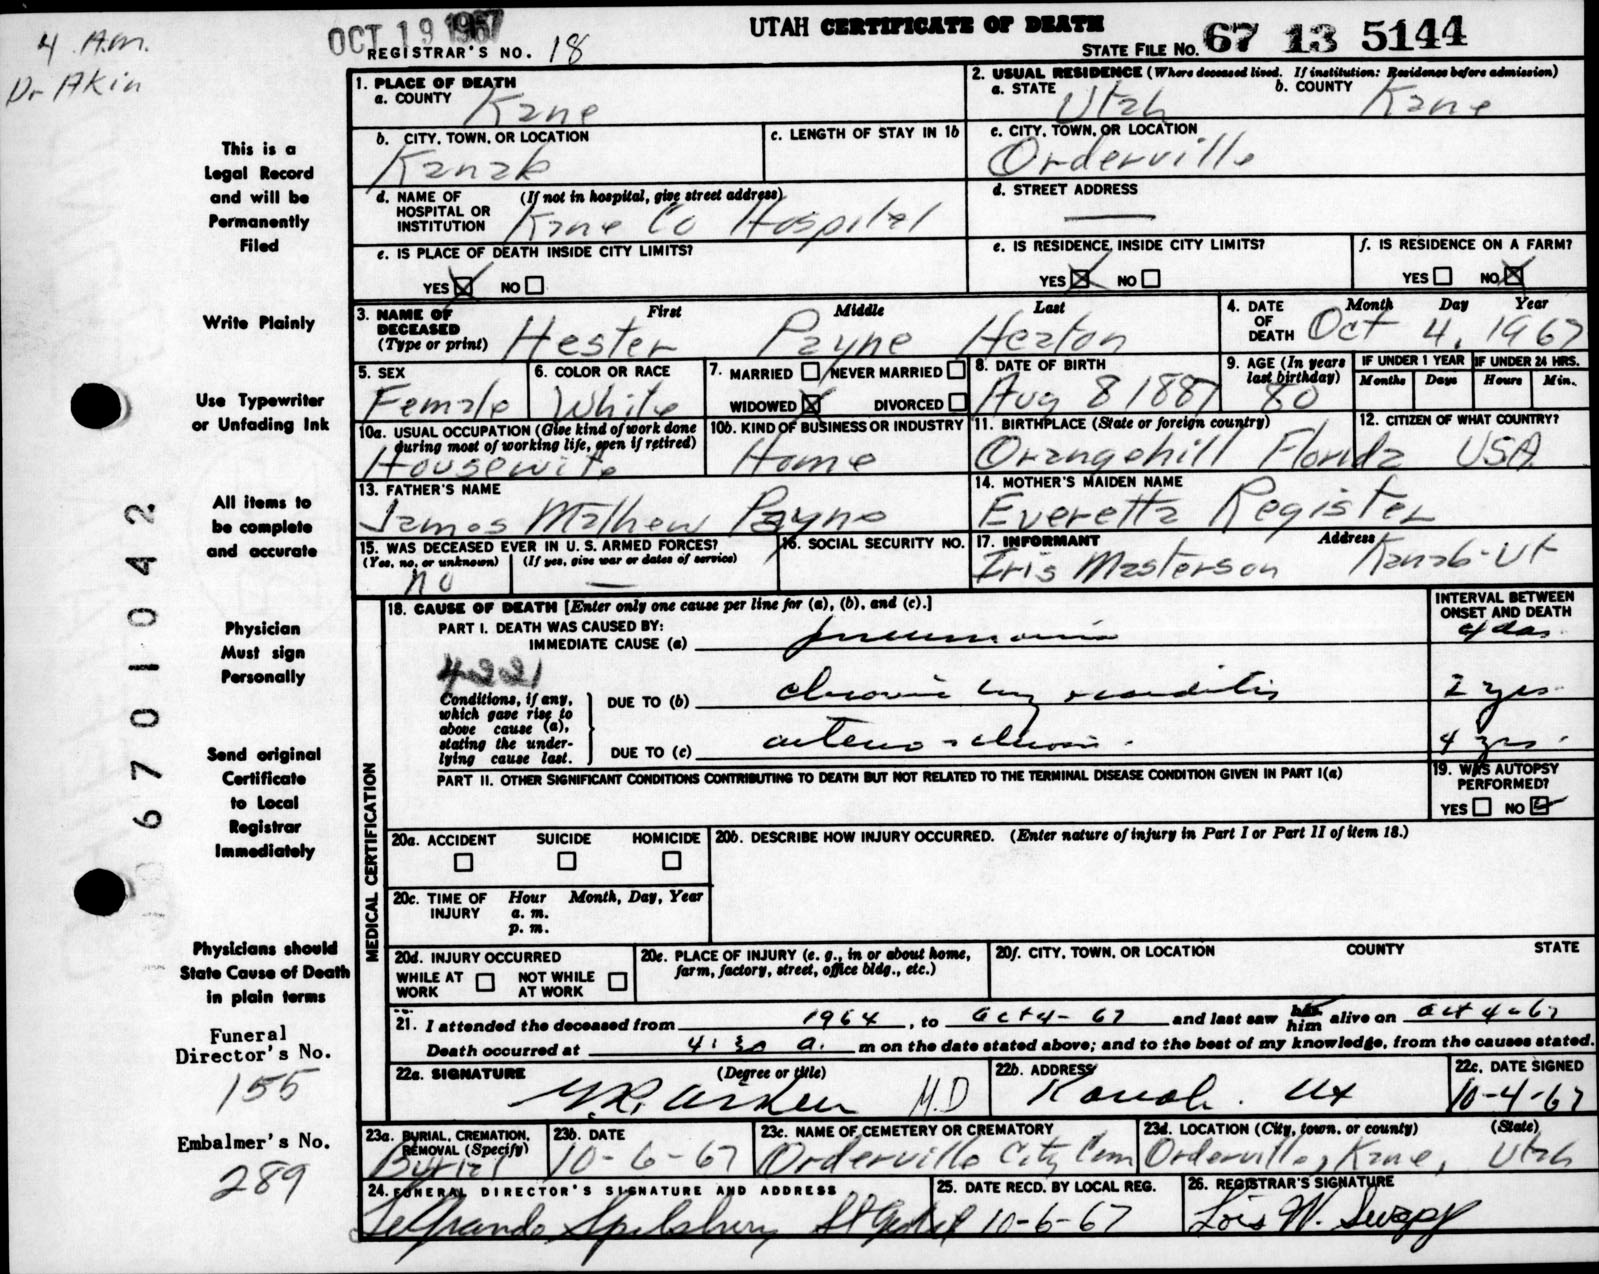 4 A.m.
Dr Akin
OCT 19 1967
REGISTRAR'S NO. 18
UTAH CERTIFICATE OF DEATH
STATE FILE NO. 67 13 5144
This is a
Legal Record
and will be
Permanently
Filed
Write Plainly
Use Typewriter
or Unfading Ink
All items to
be complete
and accurate
Physician
Must sign
Personally
Send original
Certificate
to Local
Registrar
Immediately
Physicians should
State Cause of Death
in plain terms
Funeral
Director's No.
155
Embalmer's No.
289
6701042
1. PLACE OF DEATH
a. COUNTY Kane
2. USUAL RESIDENCE (Where deceased lived. If institution: Residence before admission)
a. STATE Utah b. COUNTY Kane
b. CITY, TOWN, OR LOCATION
Kanab
c. LENGTH OF STAY IN 1b
c. CITY, TOWN, OR LOCATION
Orderville
d. NAME OF HOSPITAL OR INSTITUTION (If not in hospital, give street address)
Kane Co Hospital
d. STREET ADDRESS
—
e. IS PLACE OF DEATH INSIDE CITY LIMITS?
YES ☒ NO ☐
e. IS RESIDENCE INSIDE CITY LIMITS?
YES ☒ NO ☐
f. IS RESIDENCE ON A FARM?
YES ☐ NO ☒
3. NAME OF DECEASED (Type or print) First Middle Last
Hester Payne Heaton
4. DATE OF DEATH Month Day Year
Oct 4, 1967
5. SEX
Female
6. COLOR OR RACE
White
7. MARRIED ☐ NEVER MARRIED ☐
WIDOWED ☒ DIVORCED ☐
8. DATE OF BIRTH
Aug 8 1887
9. AGE (In years last birthday)
80
IF UNDER 1 YEAR
Months Days
IF UNDER 24 HRS.
Hours Min.
10a. USUAL OCCUPATION (Give kind of work done during most of working life, even if retired)
Housewife
10b. KIND OF BUSINESS OR INDUSTRY
Home
11. BIRTHPLACE (State or foreign country)
Orangehill Florida
12. CITIZEN OF WHAT COUNTRY?
USA
13. FATHER'S NAME
James Mathew Payne
14. MOTHER'S MAIDEN NAME
Everetta Register
15. WAS DECEASED EVER IN U. S. ARMED FORCES?
(Yes, no, or unknown) (If yes, give war or dates of service)
no —
16. SOCIAL SECURITY NO.
17. INFORMANT Address
Iris Masterson Kanab-Ut
MEDICAL CERTIFICATION
18. CAUSE OF DEATH [Enter only one cause per line for (a), (b), and (c).]
INTERVAL BETWEEN ONSET AND DEATH
PART I. DEATH WAS CAUSED BY:
IMMEDIATE CAUSE (a) pneumonia 4 das.
4221
Conditions, if any, which gave rise to above cause (a), stating the underlying cause last.
DUE TO (b) chronic myocarditis 2 yrs.
DUE TO (c) arteriosclerosis. 4 yrs.
PART II. OTHER SIGNIFICANT CONDITIONS CONTRIBUTING TO DEATH BUT NOT RELATED TO THE TERMINAL DISEASE CONDITION GIVEN IN PART I(a)
19. WAS AUTOPSY PERFORMED?
YES ☐ NO ☑
20a. ACCIDENT SUICIDE HOMICIDE
☐ ☐ ☐
20b. DESCRIBE HOW INJURY OCCURRED. (Enter nature of injury in Part I or Part II of item 18.)
20c. TIME OF INJURY Hour Month, Day, Year
a. m.
p. m.
20d. INJURY OCCURRED
WHILE AT WORK ☐ NOT WHILE AT WORK ☐
20e. PLACE OF INJURY (e. g., in or about home, farm, factory, street, office bldg., etc.)
20f. CITY, TOWN, OR LOCATION COUNTY STATE
21. I attended the deceased from 1964, to Oct 4-67 and last saw her him alive on Oct 4-67
Death occurred at 4:30 a. m on the date stated above; and to the best of my knowledge, from the causes stated.
22a. SIGNATURE (Degree or title)
Aiken M.D
22b. ADDRESS
Kanab. Ut
22c. DATE SIGNED
10-4-67
23a. BURIAL, CREMATION, REMOVAL (Specify)
Burial
23b. DATE
10-6-67
23c. NAME OF CEMETERY OR CREMATORY
Orderville City Cem
23d. LOCATION (City, town, or county) (State)
Orderville, Kane, Utah
24. FUNERAL DIRECTOR'S SIGNATURE AND ADDRESS
LeGrande Spilsbury St George
25. DATE RECD. BY LOCAL REG.
10-6-67
26. REGISTRAR'S SIGNATURE
Lois W. Swapp